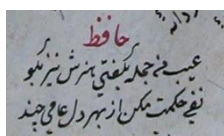 حافظ
عیب می جمله بگفتی هنرش نیز بگو
نفی حکمت مکن از بهر دل عامی چند